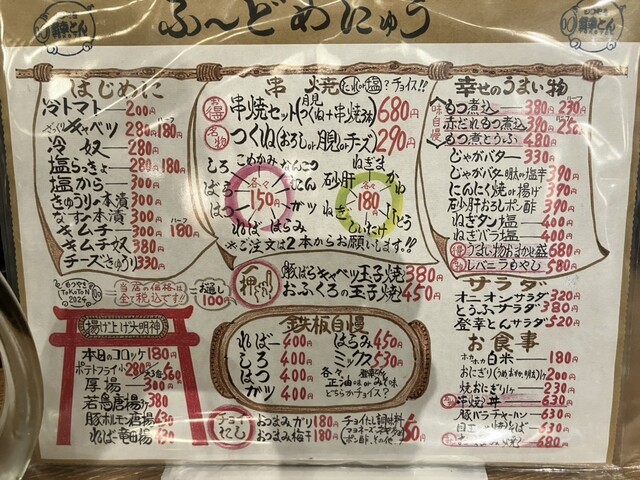 ふ〜どめにゅう
はじめに
冷トマト 200円
キャベツ 280円 ハーフ 180円
冷奴 280円
塩らっきょ 280円 180円
塩から 300円
きゅうり一本漬 300円
なす一本漬 300円
キムチ 300円 ハーフ 180円
キムチ奴 380円
チーズきゅうり 330円
串焼 たれor塩? チョイス!!
お得 串焼セット(月見つくね+串焼3本) 680円
名物 つくね(おろしor月見orチーズ) 290円
しろ こめかみ なんこつ
ばら 各々150円 たん
はつ ガツ
ればー はらみ
ねぎま
砂肝 かわ
各々180円
ねぎ
しいたけ
※ご注文は2本からお願いします。
幸せのうまい物
味自慢
もつ煮込 380円 ハーフ 230円
赤だれもつ煮込 390円 ハーフ 250円
もつ煮とうふ 480円
じゃがバター 330円
じゃがバター 塩辛 390円
にんにく焼or揚げ 390円
砂肝おろしポン酢 390円
ねぎタン塩 400円
ねぎバラ塩 400円
うまい物おまかせ盛 680円
レバニラもやし 580円
もつやき ToKoToN 2024
当店の価格は全て税込です!!
100円
一押し
豚ばらキャベツ玉子焼 380円
おふくろの玉子焼 450円
サラダ
オニオンサラダ 320円
とうふサラダ 380円
豚辛とんサラダ 520円
揚げ上げ大明神
本日のコロッケ 180円
ポテトフライ 小280円 大560
厚揚 300円
若鳥唐揚 380
豚ホルモン唐揚 430
ればー竜田揚 430
鉄板自慢
ればー 400円
しろ 400円
はつ 400円
ガツ 400円
はらみ 450円
ミックス 530円
各々、
正油味orみそ味
どちらかチョイス?
お食事
ホカホカ白米 180円
おにぎり(うめorおかかor明太) 200円
焼おにぎり 230円
串焼丼 630円
豚バラチャーハン 630円
目玉焼そば 630
680
チョイたし
おつまみガツ 180円
おつまみ梅干 180円
チョイたし調味料
マヨネーズ・キザミ
ポン酢、その他 50円